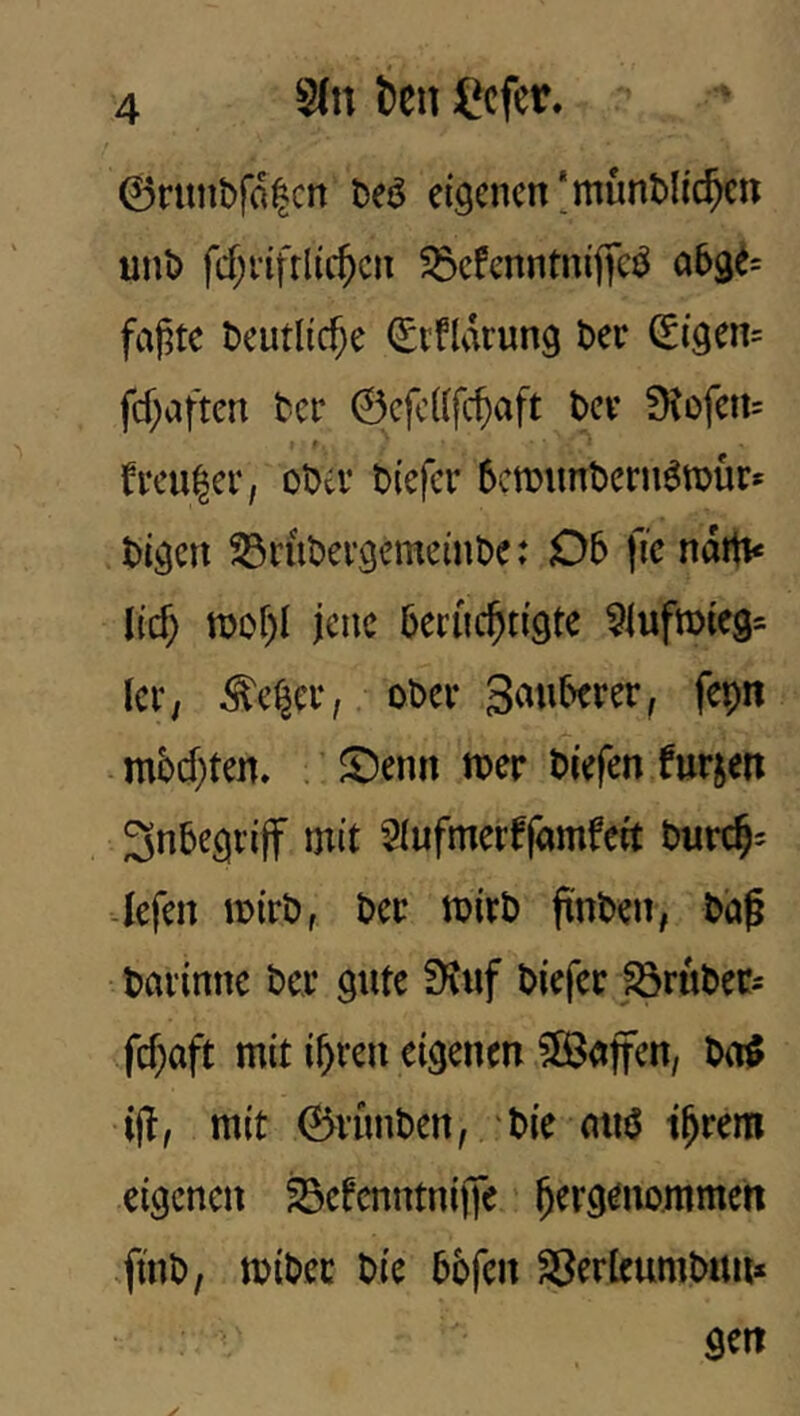 4 An den Leser.
Grundsätzen des eigenen mündlichen
und schriftlichen Bekenntnisses abge-
faßte deutliche Erklärung der Eigen-
schaften der Gesellschaft der Rosen-
kreutzer, oder dieser bewundernswür-
digen Brüdergemeinde: Ob sie näm-
lich wohl jene berüchtigte Aufwieg-
ler, Ketzer, oder Zauberer, seyn
möchten. Denn wer diesen kurzen
Inbegriff mit Aufmerksamkeit durch-
lesen wird, der wird finden, daß
darinne der gute Ruf dieser Brüder-
schaft mit ihren eigenen Waffen, das
ist, mit Gründen, die aus ihrem
eigenen Bekenntnisse hergenommen
sind, wider die bösen Verleumdun-
gen